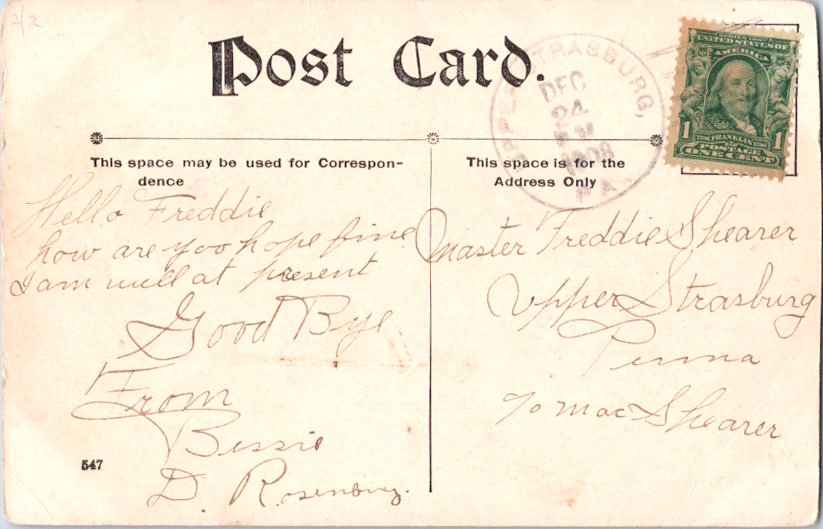 22
Post Card.
UPPER STRASBURG,
DEC
24
1908
PA.
SERIES 1902
UNITED STATES OF
AMERICA
1 1
1706 FRANKLIN 1790
POSTAGE
ONE CENT
This space may be used for Correspon-
dence
This space is for the
Address Only
Hello Freddie
how are yoo hope fine
I am well at present
Good Bye.
From
Bessie
D. Rosenburg.
Master Freddie Shearer
Upper Strasburg
Penna
% Mac Shearer
547